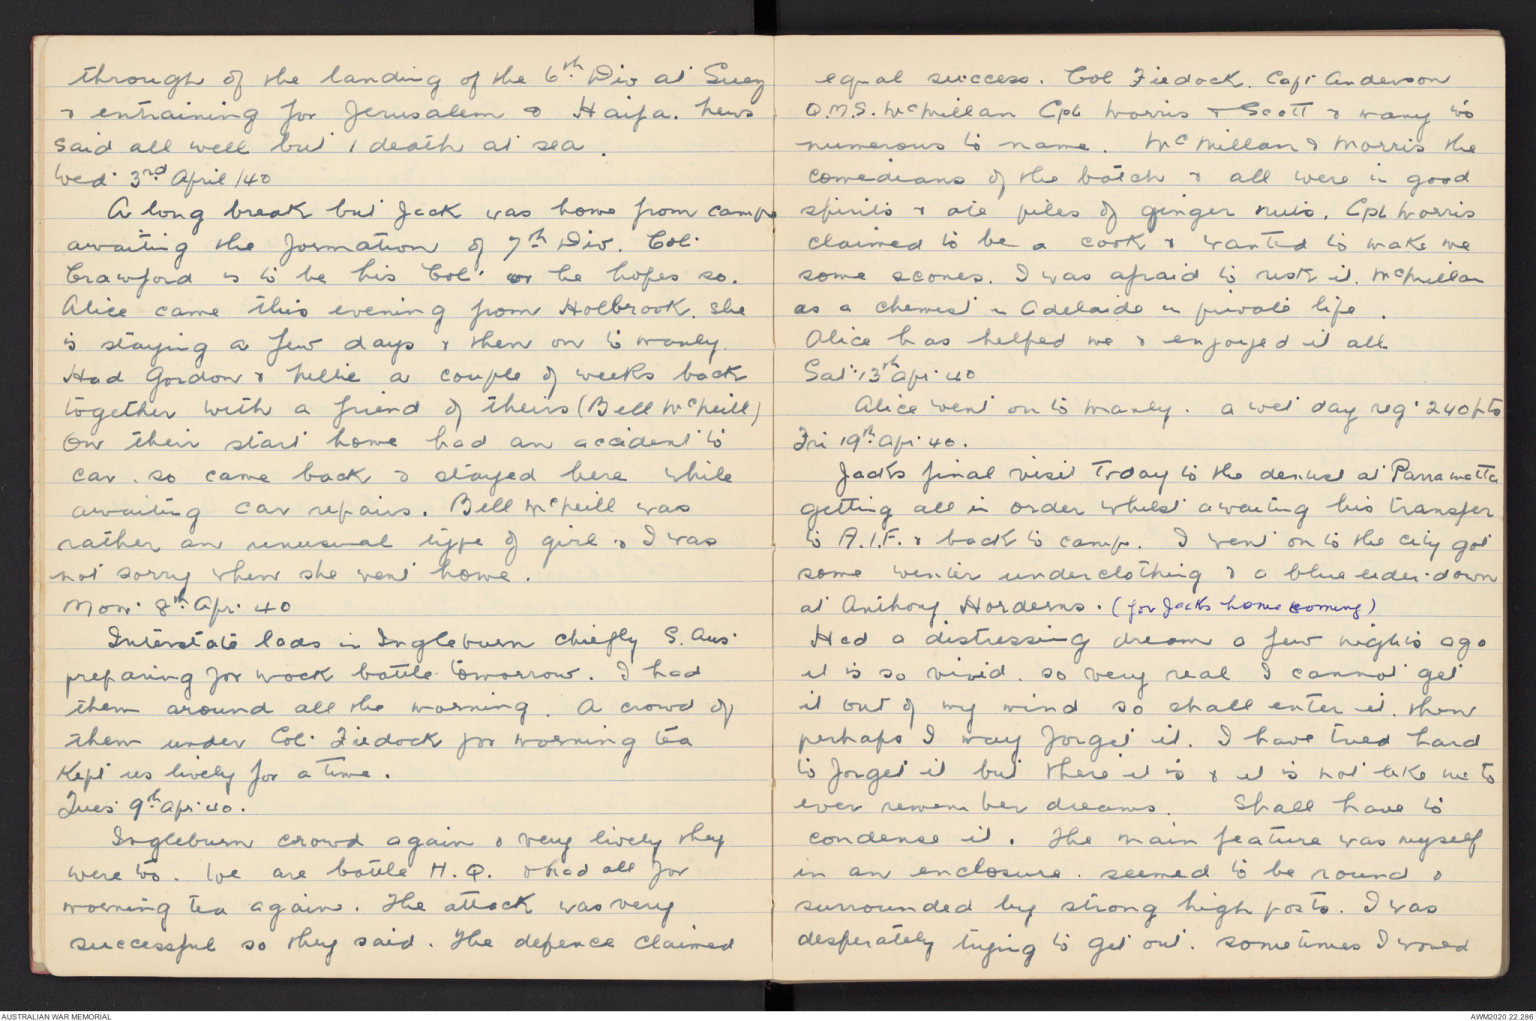 through of the landing of the 6th Div at Suez
& entraining for Jerusalem & Haifa. News
said all well but 1 death at sea.
Wed. 3rd April /40
A long break but Jack was home from camp
awaiting the formation of 7th Div. Col.
Crawford is to be his Col. or he hopes so.
Alice came this evening from Holbrook. She
is staying a few days & then on to Manly.
Had Gordon & Nellie a couple of weeks back
together with a friend of theirs (Bell McNeill)
On their start home had an accident to
car. so came back & stayed here while
awaiting car repairs. Bell McNeill was
rather an unusual type of girl & I was
not sorry when she went home.
Mon. 8th Apr. 40
Interstate lads in Ingleburn chiefly S. Aus.
preparing for mock battle tomorrow. I had
them around all the morning. A crowd of
them under Col. Fidock for morning tea
kept us lively for a time.
Tues. 9th Apr. 40.
Ingleburn crowd again & very lively they
were too. We are battle H.Q. & had all for
morning tea again. The attack was very
successful so they said. The defence claimed
equal success. Col Fidock. Capt Anderson
Q.M.S. McMillan Cpl Morris & Scott & many too
numerous to name. McMillan & Morris the
comedians of the batch & all were in good
spirits & ate piles of ginger nuts. Cpl Morris
claimed to be a cook & wanted to make me
some scones. I was afraid to risk it. McMillan
as a chemist in Adelaide in private life.
Alice has helped me & enjoyed it all
Sat. 13th Apr. 40
Alice went on to Manly. a wet day reg. 240 pts
Fri 19th Apr. 40.
Jacks final visit today to the dentist at Parramatta
getting all in order whilst awaiting his transfer
to A.I.F. & back to camp. I went on to the city got
some winter underclothing & a blue eider-down
at Anthony Horderns. (for Jacks home coming)
Had a distressing dream a few nights ago
it is so vivid. so very real I cannot get
it out of my mind so shall enter it. then
perhaps I may forget it. I have tried hard
to forget it but there it is & it is not like me to
ever remember dreams. Shall have to
condense it. The main feature was myself
in an enclosure. seemed to be round &
surrounded by strong high posts. I was
desperately trying to get out. sometimes I would
AUSTRALIAN WAR MEMORIAL
AWM2020.22.286